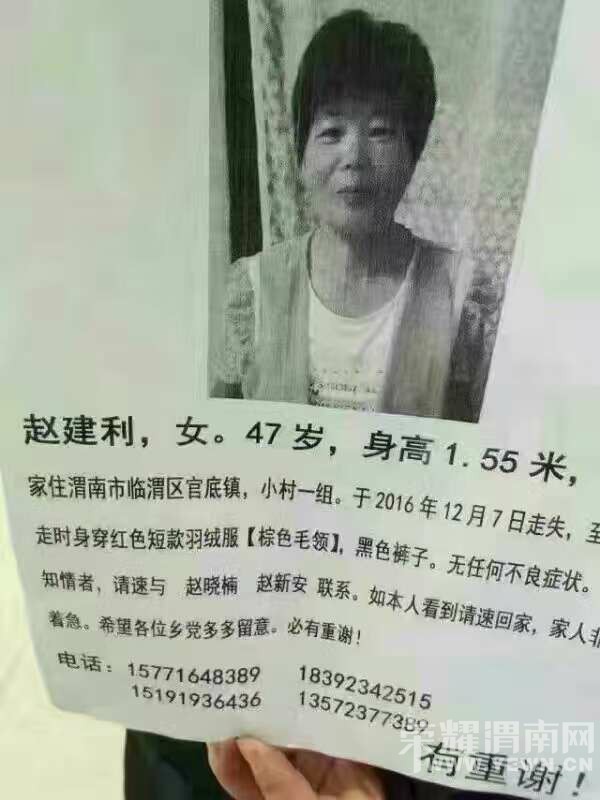 赵建利，女。47岁，身高1.55米，
家住渭南市临渭区官底镇，小村一组。于2016年12月7日走失，至
走时身穿红色短款羽绒服【棕色毛领】，黑色裤子。无任何不良症状。
知情者，请速与 赵晓楠 赵新安 联系。如本人看到请速回家，家人非
着急。希望各位乡党多多留意。必有重谢！
电话：15771648389 18392342515
15191936436 13572377389
有重谢！
荣耀渭南网